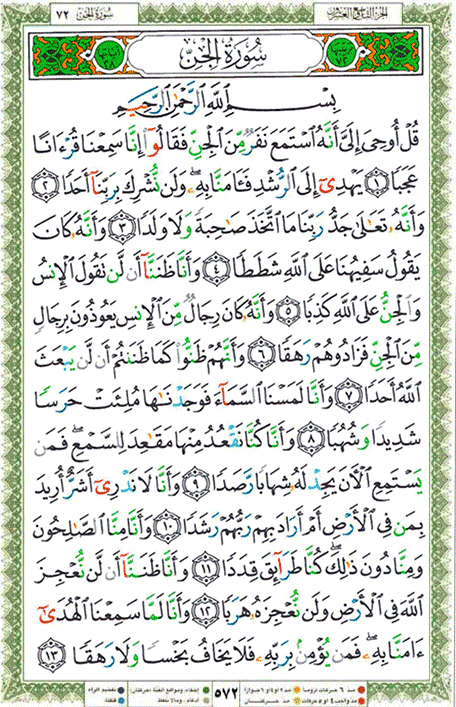 الجزء التاسع والعشرون
سورة الجن ٧٢
سُورَةُ الجِنِّ
بِسْمِ ٱللَّهِ ٱلرَّحْمَٰنِ ٱلرَّحِيمِ
قُلْ أُوحِىَ إِلَىَّ أَنَّهُ ٱسْتَمَعَ نَفَرٌ مِّنَ ٱلْجِنِّ فَقَالُوٓا۟ إِنَّا سَمِعْنَا قُرْءَانًا
عَجَبًا ١ يَهْدِىٓ إِلَى ٱلرُّشْدِ فَـَٔامَنَّا بِهِۦ ۖ وَلَن نُّشْرِكَ بِرَبِّنَآ أَحَدًا ٢
وَأَنَّهُۥ تَعَٰلَىٰ جَدُّ رَبِّنَا مَا ٱتَّخَذَ صَٰحِبَةً وَلَا وَلَدًا ٣ وَأَنَّهُۥ كَانَ
يَقُولُ سَفِيهُنَا عَلَى ٱللَّهِ شَطَطًا ٤ وَأَنَّا ظَنَنَّآ أَن لَّن نَقُولَ ٱلْإِنسُ
وَٱلْجِنُّ عَلَى ٱللَّهِ كَذِبًا ٥ وَأَنَّهُۥ كَانَ رِجَالٌ مِّنَ ٱلْإِنسِ يَعُوذُونَ بِرِجَالٍ
مِّنَ ٱلْجِنِّ فَزَادُوهُمْ رَهَقًا ٦ وَأَنَّهُمْ ظَنُّوا۟ كَمَا ظَنَنتُمْ أَن لَّن يَبْعَثَ
ٱللَّهُ أَحَدًا ٧ وَأَنَّا لَمَسْنَا ٱلسَّمَآءَ فَوَجَدْنَٰهَا مُلِئَتْ حَرَسًا
شَدِيدًا وَشُهُبًا ٨ وَأَنَّا كُنَّا نَقْعُدُ مِنْهَا مَقَٰعِدَ لِلسَّمْعِ ۖ فَمَن
يَسْتَمِعِ ٱلْءَانَ يَجِدْ لَهُۥ شِهَابًا رَّصَدًا ٩ وَأَنَّا لَا نَدْرِىٓ أَشَرٌّ أُرِيدَ
بِمَن فِى ٱلْأَرْضِ أَمْ أَرَادَ بِهِمْ رَبُّهُمْ رَشَدًا ١٠ وَأَنَّا مِنَّا ٱلصَّٰلِحُونَ
وَمِنَّا دُونَ ذَٰلِكَ ۖ كُنَّا طَرَآئِقَ قِدَدًا ١١ وَأَنَّا ظَنَنَّآ أَن لَّن نُّعْجِزَ
ٱللَّهَ فِى ٱلْأَرْضِ وَلَن نُّعْجِزَهُۥ هَرَبًا ١٢ وَأَنَّا لَمَّا سَمِعْنَا ٱلْهُدَىٰٓ
ءَامَنَّا بِهِۦ ۖ فَمَن يُؤْمِنۢ بِرَبِّهِۦ فَلَا يَخَافُ بَخْسًا وَلَا رَهَقًا ١٣
٥٧٢